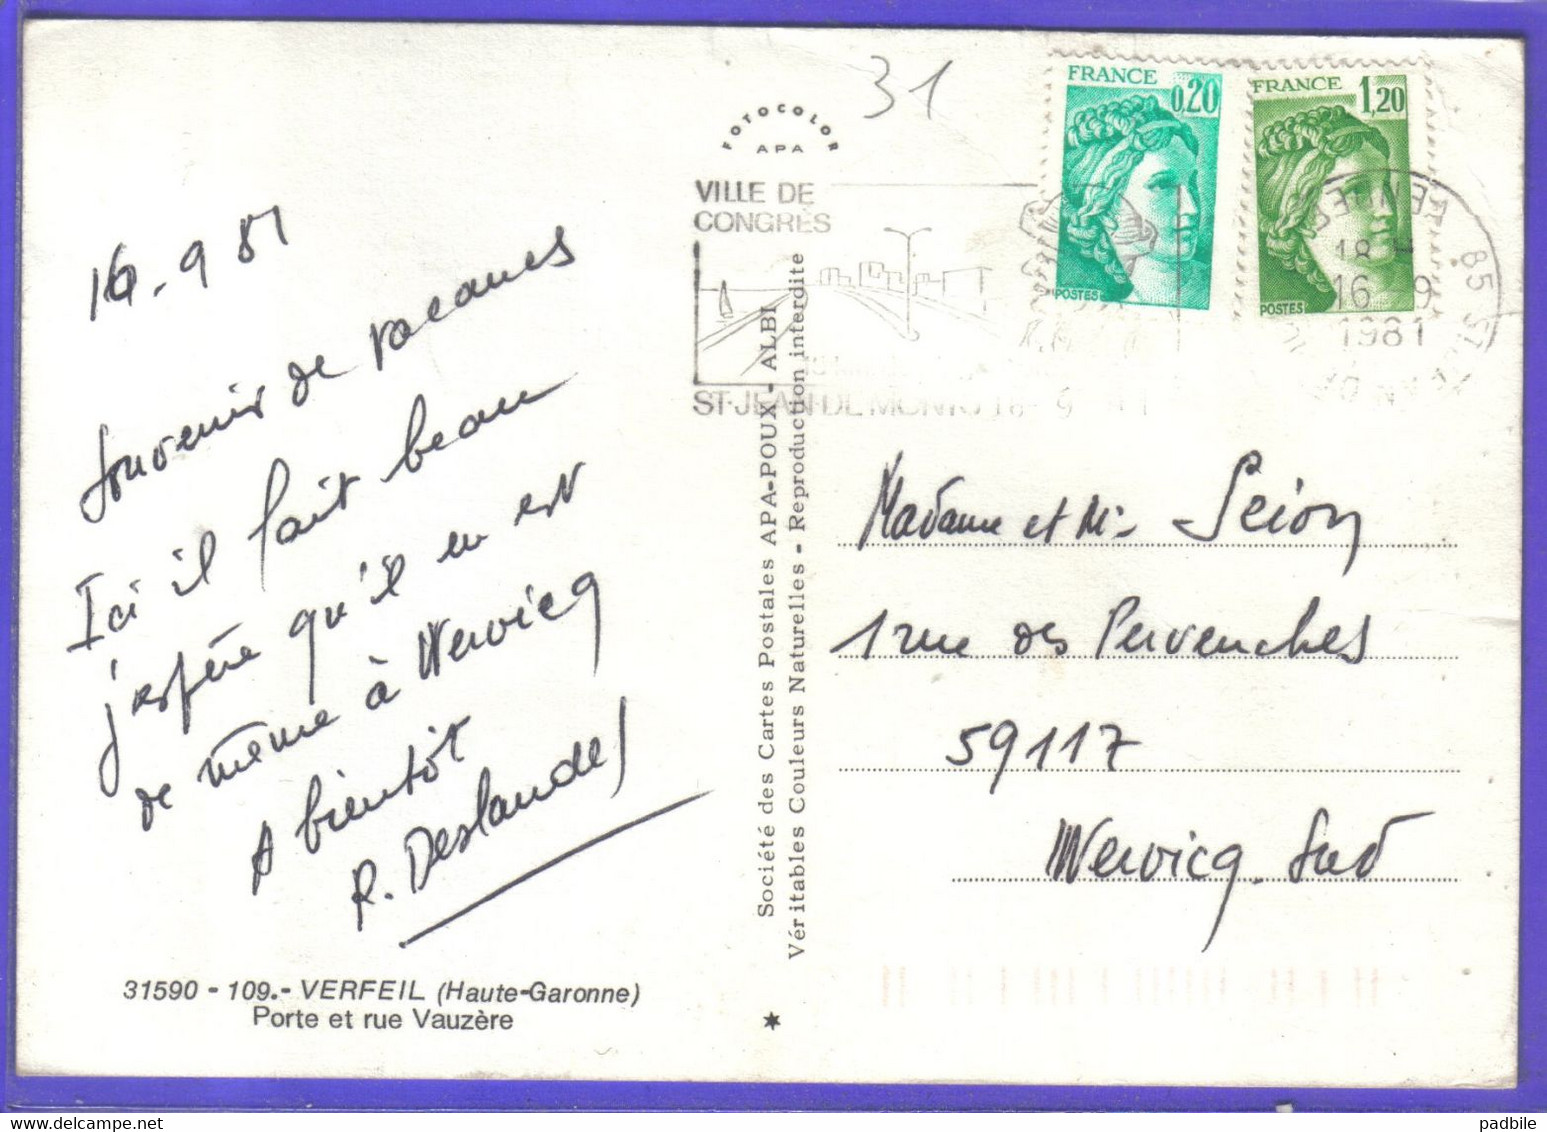 31
FOTOCOLOR
APA
FRANCE
0,20
POSTES
FRANCE
1,20
POSTES
VILLE DE
CONGRÈS
ST-JEAN-DE-MONTS 16-9
85 ST JEAN DE
VENDEE
18 H
16 9
1981
16.9 81
Souvenir de vacances
Ici il fait beau
j'espère qu'il en est
de même à Wervicq
A bientôt
R. Deslandes
31590 - 109.- VERFEIL (Haute-Garonne)
Porte et rue Vauzère
Société des Cartes Postales APA-POUX - ALBI
Véritables Couleurs Naturelles - Reproduction interdite
Madame et Mr Seion
1 rue des Pervenches
59117
Wervicq. Sud
padbile